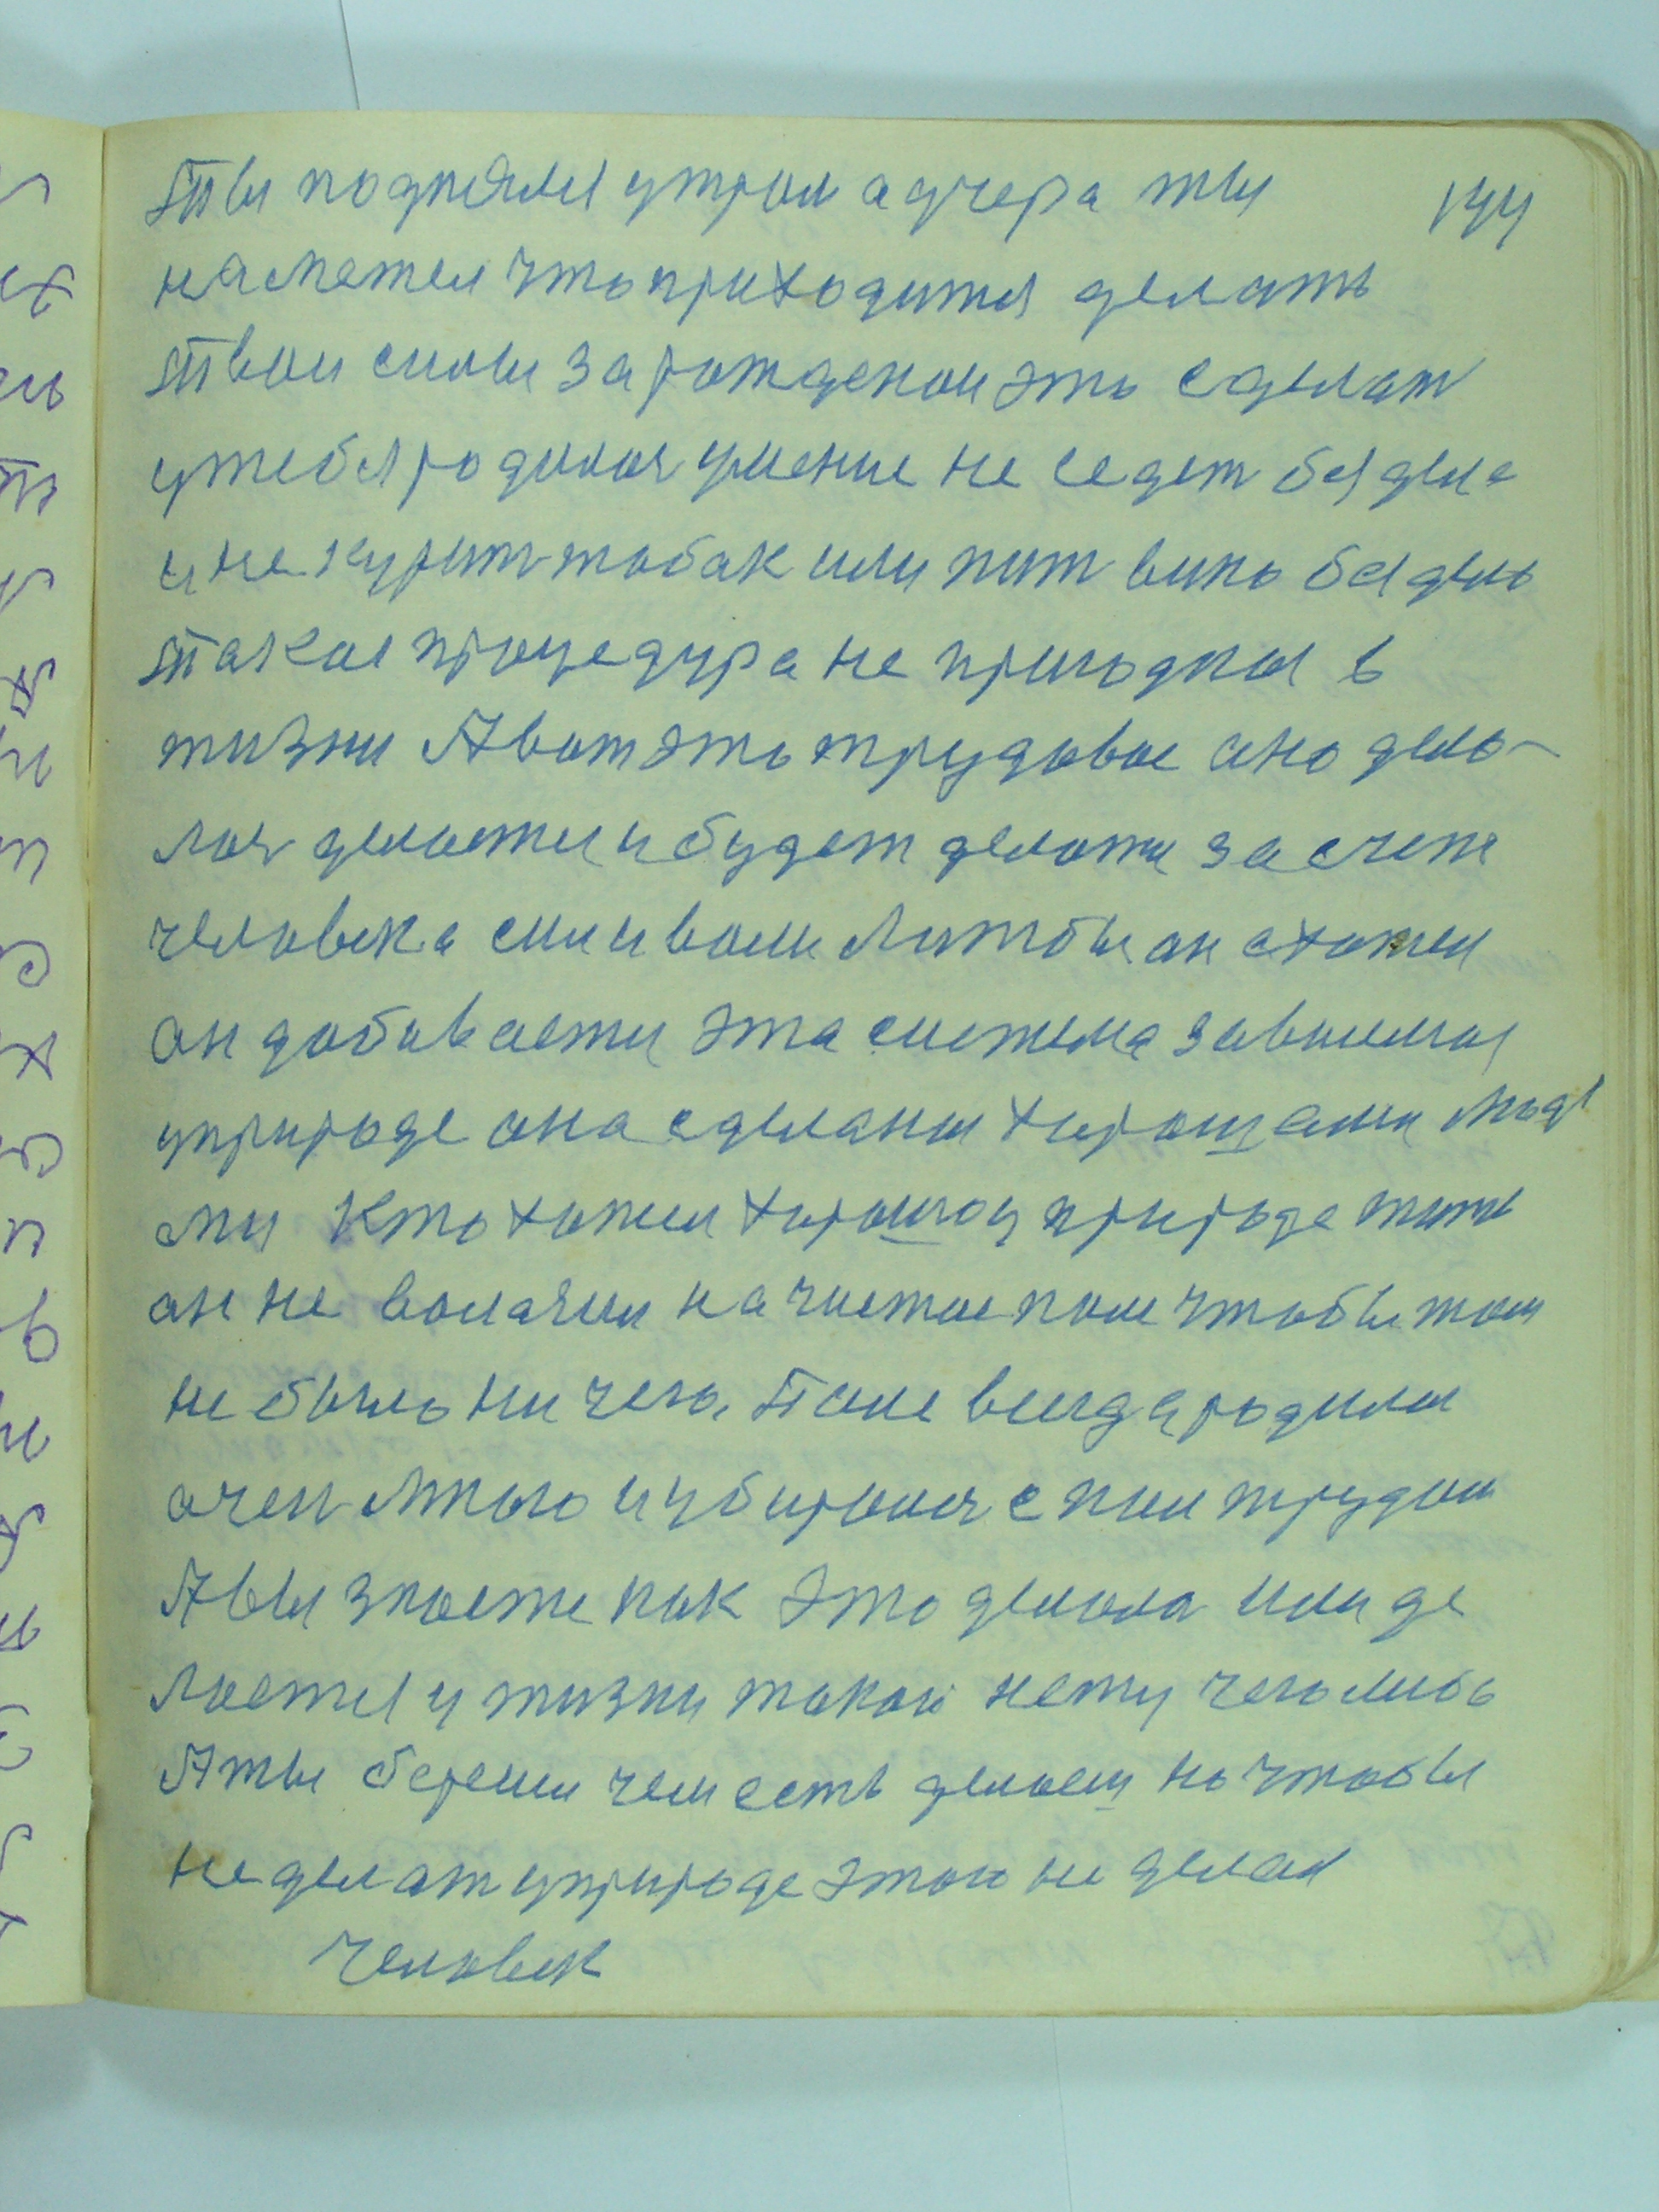 Ты поднялся утром а учера ты 144
наметел что приходится делать
Твои силы зарожденои это сделат
у тебя родилос умение не седет без дела
и не курит тобак или пит вино без дела
Такая процедура не пригодная в
жизни А вот это трудовое оно дело-
лос делается и будет делатся за счет
человека сили воли Литбы он схотел
он добивается эта система зависимая
у природе она сделаная хорошеми люд
ми Кто хотел хорошого у природе жить
он не волачил на чистое поле чтобы там
не было ни чего. Поле всегда родила
очен много и убиролос с поля трудом
А вы знаете как это делолос или де
лается у жизни такой нету чего либо
А ты береш чем есть делаеш но чтобы
не делат у природе этого не делал
человек